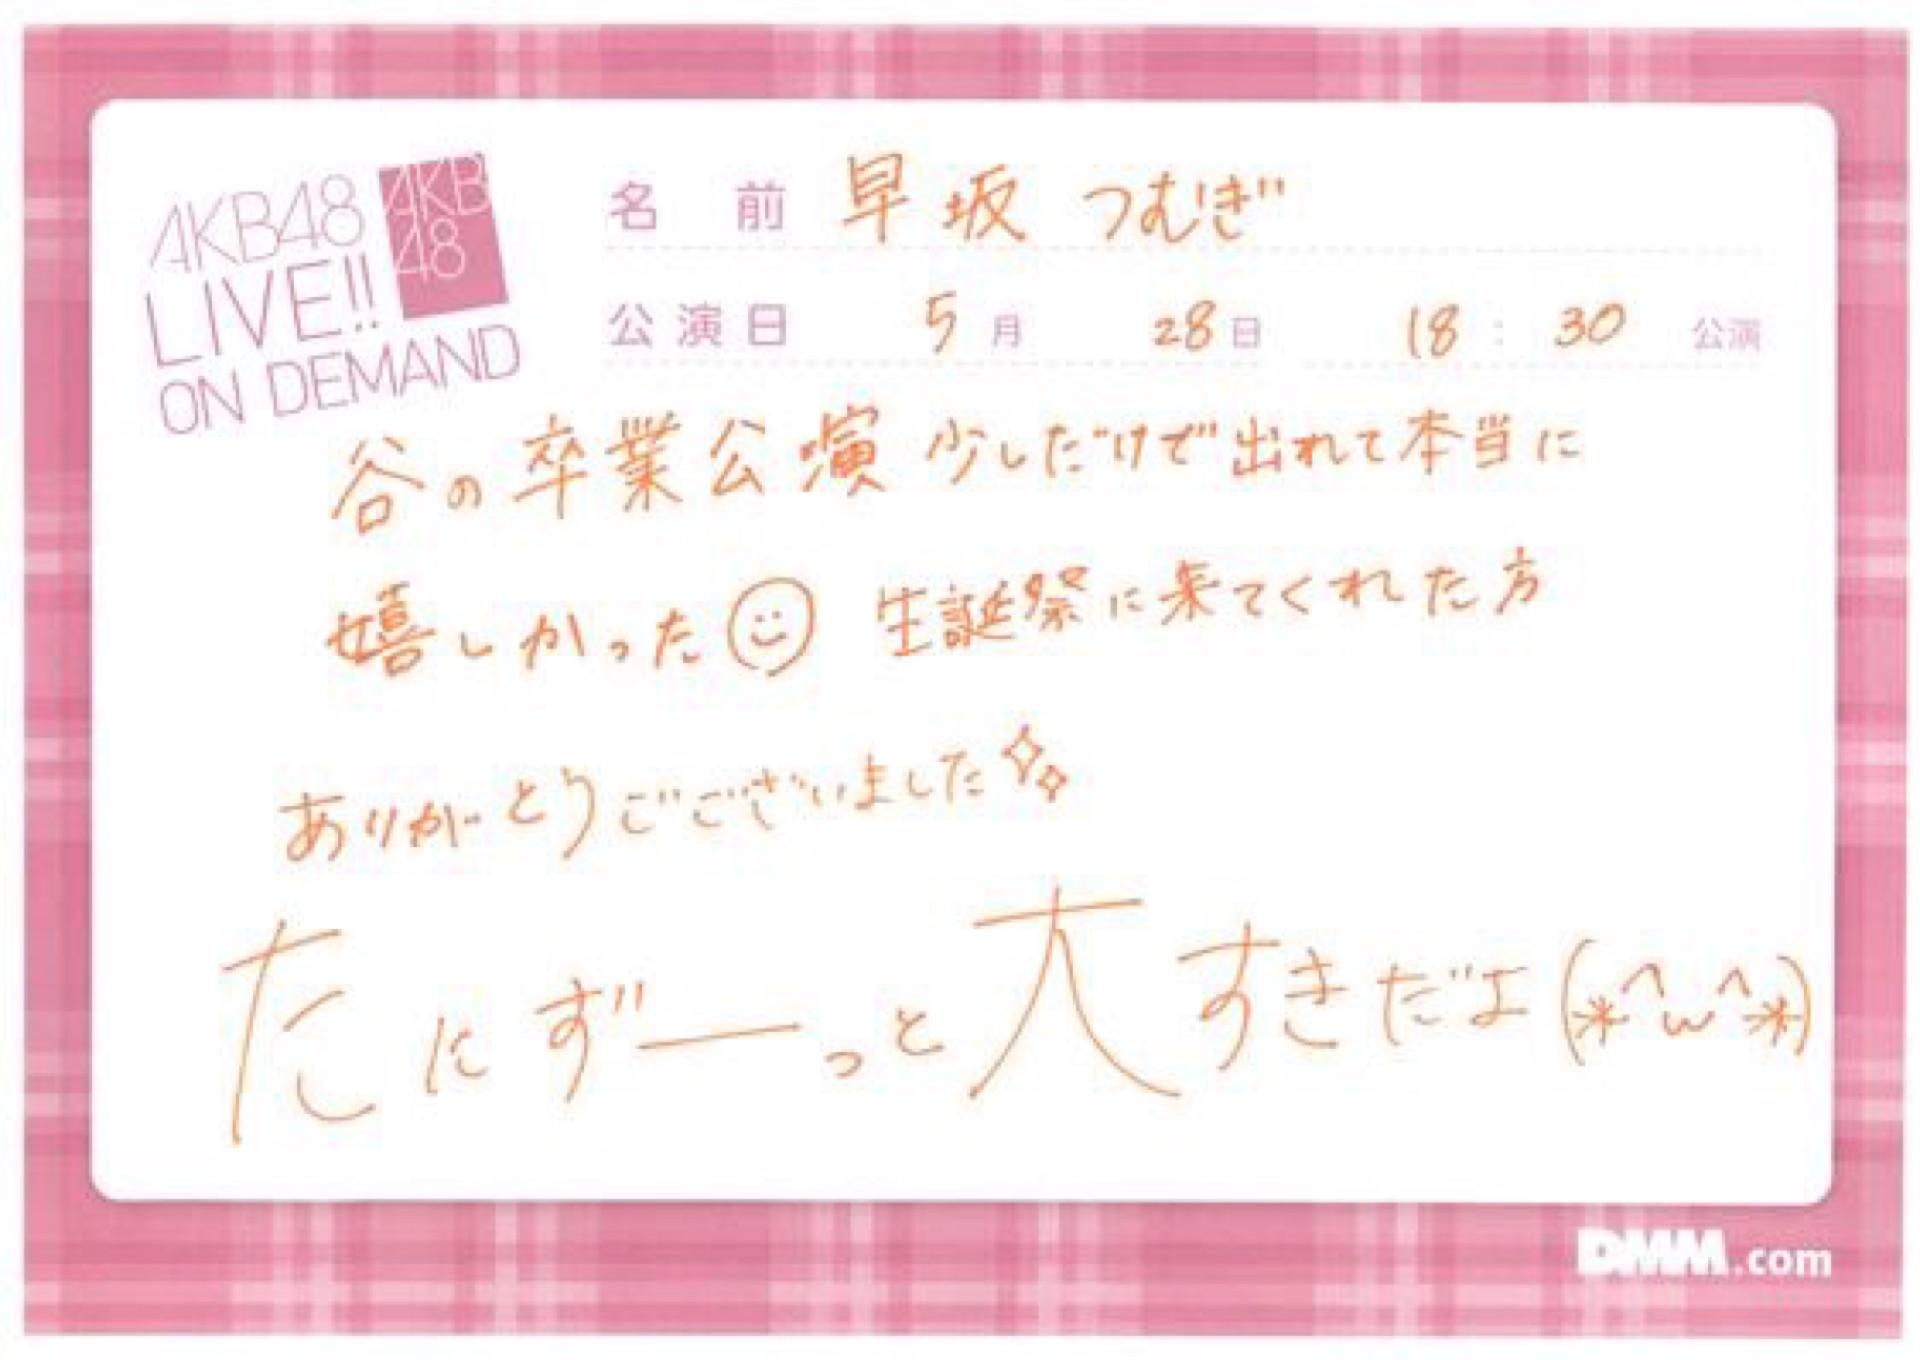 AKB48
LIVE!!
ON DEMAND
AKB
48
名前 早坂 つむぎ
公演日 5月 28日 18:30 公演
谷の卒業公演 少しだけで出れて本当に
嬉しかった 生誕祭に来てくれた方
ありがとうごございました
たにずーっと大すきだよ(*^w^*)
DMM.com